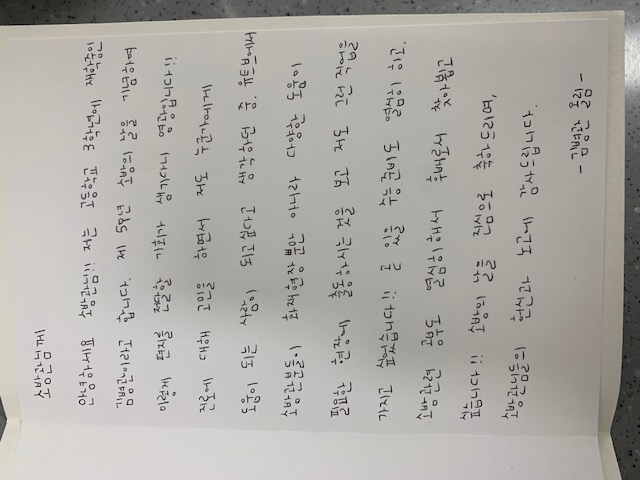 소방관님께
안녕하세요 소방관님!! 저는 고등학교 3학년에 재학중인
김병관이라고 합니다. 제 59년 소방의 날을 기념하여
이렇게 편지를 전달할 기회가 생기다니 영광입니다!!
진로에 대해 고민을 하면서 저도 누군가에게
도움이 되는 사람이 되고 싶다고 생각하던 중, 유튜브에서
소방관분들이 화재현장뿐만 아니라 다양한 도움이
필요한 현장에 출동하시는 것을 보고 저도 그런 직업을
가지고 싶어졌습니다!! 곧 있을 수능준비도 열심히 하고,
소방관련 공부도 열심히해서 후배로서 찾아뵙고
싶습니다!! 소방의 날을 진심으로 축하드리며,
소방관님들의 헌신과 노고에 감사드립니다.
- 김병관 올림 -